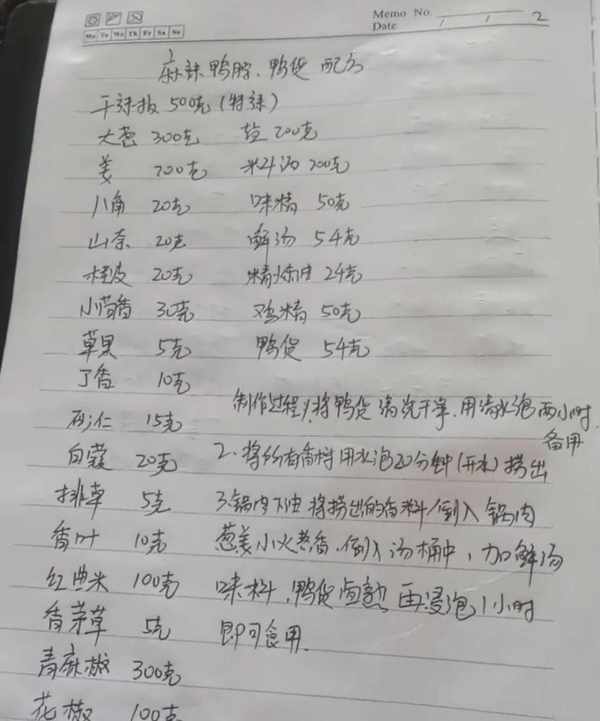 Memo No.
Date / / 2
Mo Tu We Th Fr Sa Su
麻辣鸭脖、鸭货 配方
干辣椒 500克(特辣)
大葱 300克 盐 200克
姜 200克 料汤 200克
八角 20克 味精 50克
山奈 20克 鲜汤 54克
桂皮 20克 精炼油 24克
小茴香 30克 鸡精 50克
草果 5克 鸭货 54克
丁香 10克
制作过程1.将鸭货 清洗干净.用清水泡两小时.
砂仁 15克
备用
白蔻 20克 2.将所有香料用水泡20分钟(开水)捞出
排草 5克 3锅内下油 将捞出的香料倒入锅内
香叶 10克 葱姜小火熬香.倒入汤桶中,加鲜汤
红曲米 100克 味料.鸭货卤熟 再浸泡1小时
香茅草 5克 即可食用.
青麻椒 300克
花椒 100克